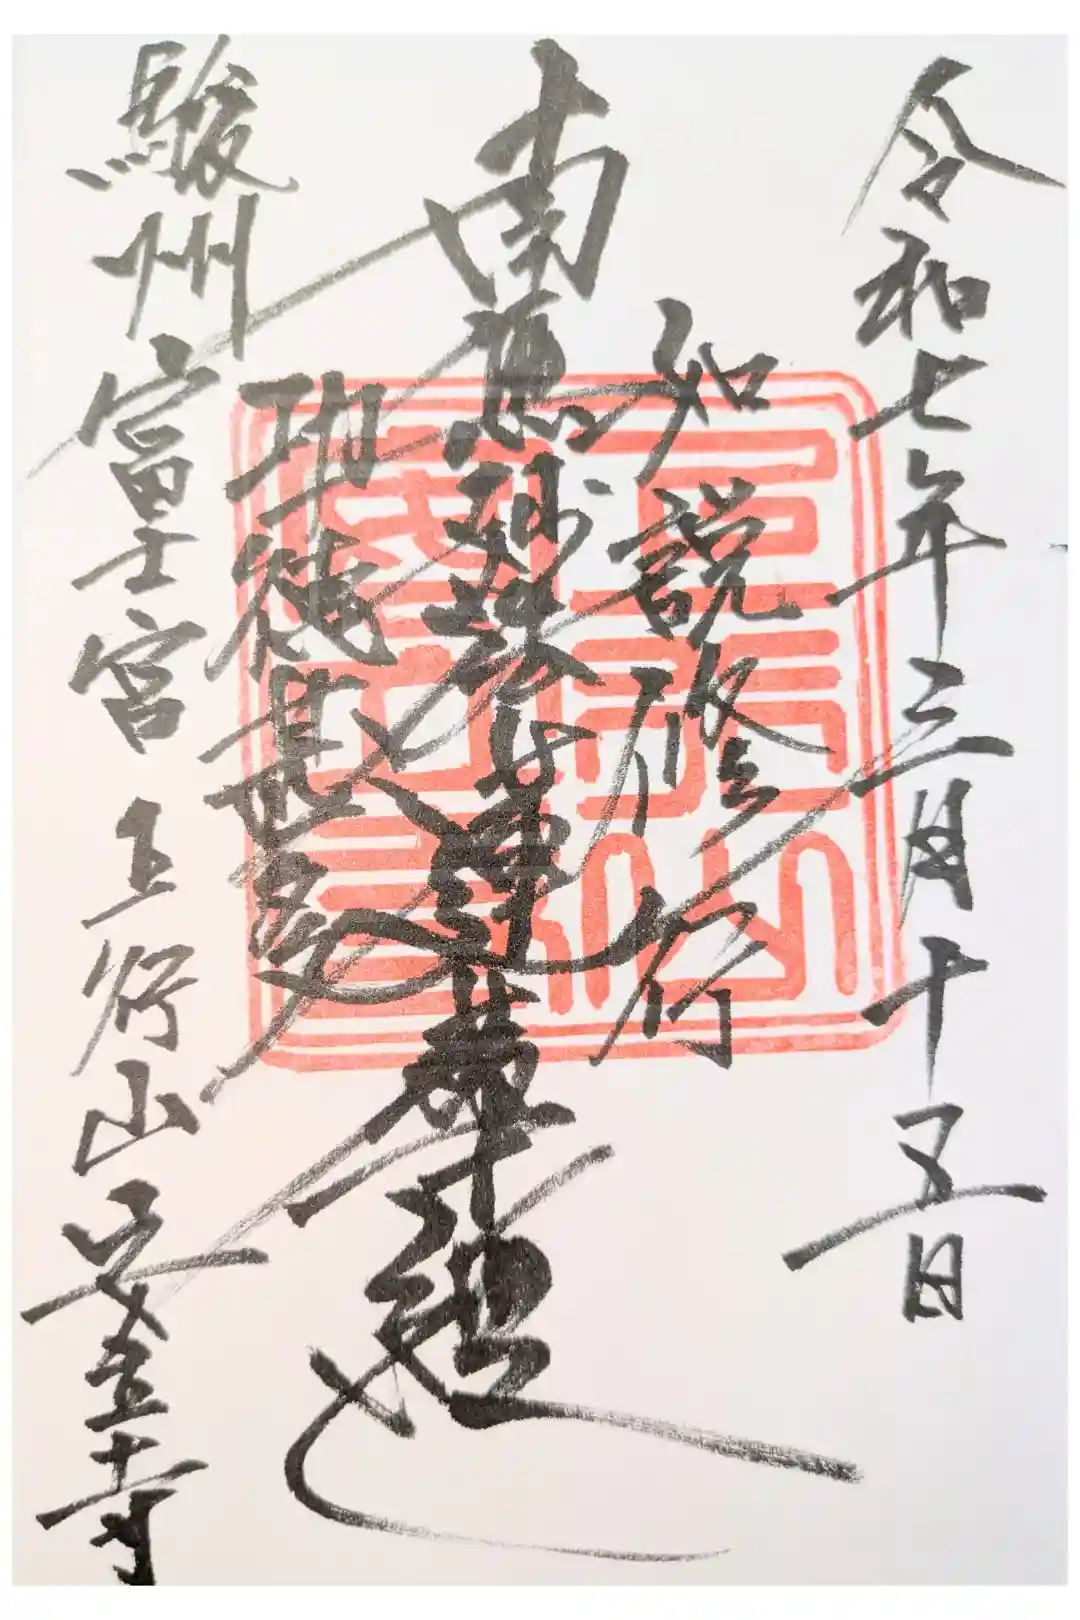 令和七年三月十五日
如説修行
南無妙法蓮華経
功徳甚多
駿州富士宮 上行山 寺